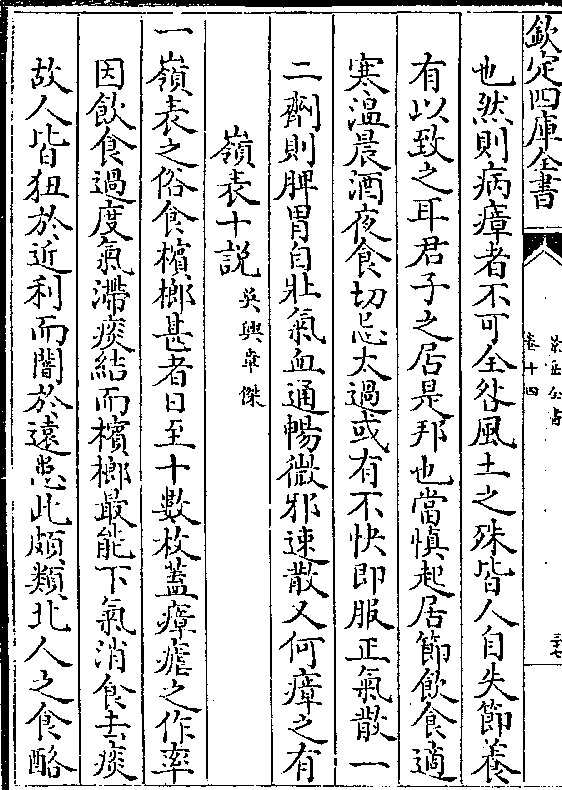 欽定四庫全書
景岳全書
卷十四
三七
也然則病瘴者不可全咎風土之殊皆人自失節養
有以致之耳君子之居是邦也當慎起居節飲食適
寒温晨酒夜食切忌太過或有不快即服正氣散一
二劑則脾胃自壯氣血通暢微邪速散又何瘴之有
嶺表十説 吳興章傑
一嶺表之俗食檳榔甚者日至十數枚蓋瘴瘧之作率
因飲食過度氣滯痰結而檳榔最能下氣消食去痰
故人皆狃於近利而闇於遠患此頗類北人之食酪